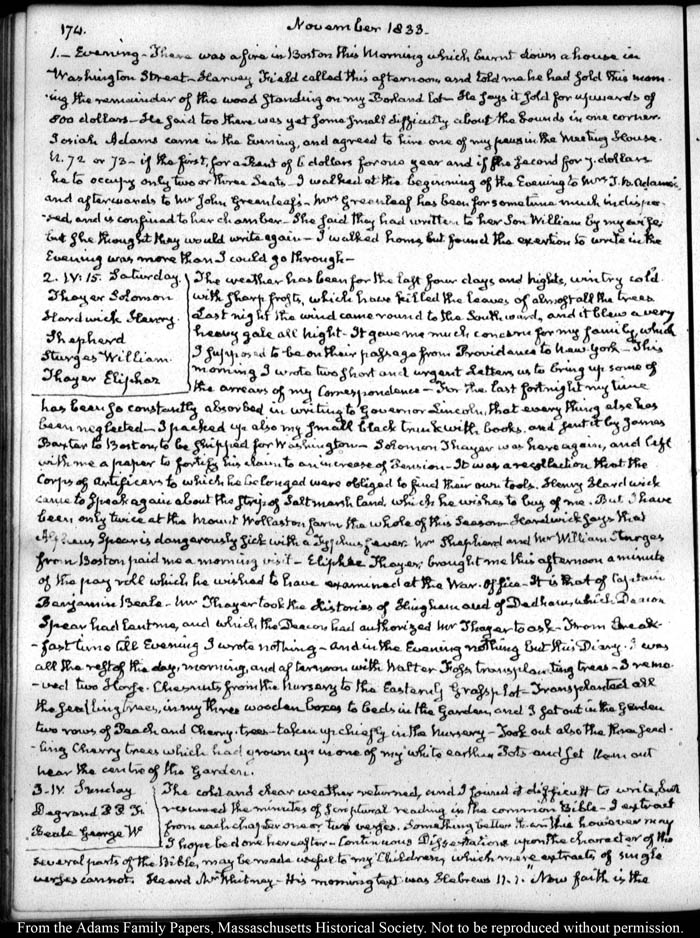 174. November 1833.
1. – Evening – There was a fire in Boston this Morning which burnt down a house in
Washington Street – Harvey Field called this afternoon, and told me he had sold this morn-
ing the remainder of the wood standing on my Borland Lot – He says it sold for upwards of
800 dollars – He said too there was yet some small difficulty about the bounds in one corner
Josiah Adams came in the Evening, and agreed to hire one of my pews in the Meeting House.
N. 72 or 73 – if the first, for a Rent of 6 dollars for one year and if the second for 7. dollars
he to occupy only two or three Seats – I walked at the beginning of the Evening to Mrs T. B. Adams's
and afterwards to Mr John Greenleaf's – Mrs Greenleaf has been for some time much indispo-
sed, and is confined to her chamber – She said they had written to her Son William by my wife
but she thought they would write again – I walked home, but found the exertion to write in the
Evening was more than I could go through –
2. IV: 15. Saturday
Thayer Solomon
Hardwick Henry
Shepherd
Sturges William
Thayer Eliphaz
The weather has been for the last four days and nights, wintry cold
with sharp frosts, which have killed the leaves of almost all the trees
Last night the wind came round to the Southward, and it blew a very
heavy gale all night – It gave me much concern for my family, which
I supposed to be on their passage from Providence to New York – This
morning I wrote two short and urgent Letters to bring up some of
the arrears of my Correspondence – For the last fortnight my time
has been so constantly absorbed in writing to Governor Lincoln, that every thing else has
been neglected – I packed up also my small black trunk with books, and sent it by James
Baxter to Boston, to be shipped for Washington – Solomon Thayer was here again, and left
with me a paper to fortify his claim to an increase of Pension – It was a recollection that the
Corps of Artificers to which he belonged were obliged to find their own tools. Henry Hardwick
came to speak again about the strip of Salt marsh land, which he wishes to buy of me. But I have
been only twice at the Mount Wollaston farm the whole of this Season – Hardwick says that
Alpheus Spear is dangerously sick with a Typhus fever. Mr Shepherd and Mr William Sturges
from Boston paid me a morning visit – Eliphaz Thayer, brought me this afternoon a minute
of the pay roll which he wished to have examined at the War-Office – It is that of Captain
Benjamin Beale – Mr Thayer took the Histories of Hingham and of Dedham, which Deacon
Spear had lent me, and which the Deacon had authorized Mr Thayer to ask – From Break-
-fast time till Evening I wrote nothing – and in the Evening nothing but this Diary. I was
all the rest of the day, morning, and afternoon with Walter Foss transplanting trees – I remo-
-ved two Horse-Chesnuts from the Nursery to the Easternly Grass plot – Transplanted all
the seedling trees, in my three wooden boxes to beds in the Garden, and I set out in the Garden
two rows of Peach and Cherry-trees – taken up chiefly in the Nursery – Took out also the three seed-
-ling Cherry trees which had grown up in one of my white earthen Pots – and set them out
near the centre of the Garden.
3 – IV. Sunday
Degrand P. P. F.
Beale George W
The cold and clear weather returned, and I found it difficult to write, but
resumed the minutes of Scriptural reading in the common Bible – I extract
from each chapter one or two verses. Something better than this however may
I hope be done hereafter – Continuous Dissertations upon the character of the
several parts of the Bible, may be made useful to my Children, which mere extracts of single
verses cannot. Heard Mr Whitney – His morning text was Hebrews 11. 1. "Now faith is the
From the Adams Family Papers, Massachusetts Historical Society. Not to be reproduced without permission.